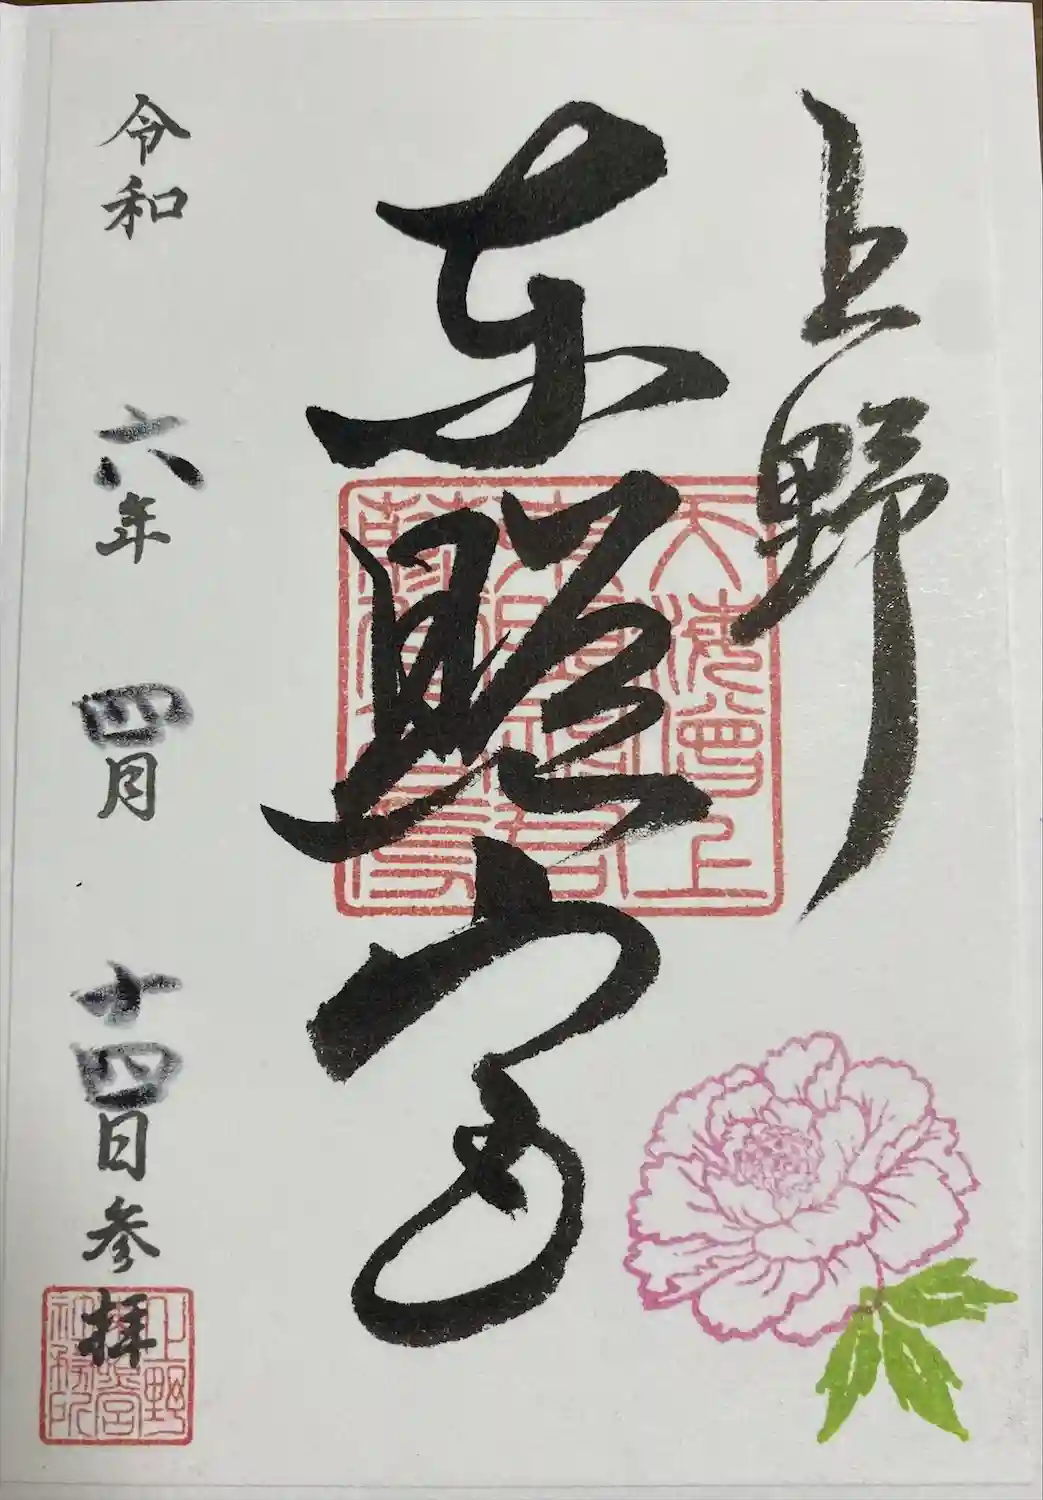 上野
東照宮
令和六年四月十四日参拝
上野
東照宮
社務所